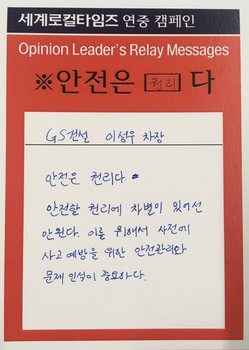 세계로컬타임즈 연중 캠페인
Opinion Leader's Relay Messages
※안전은 권리 다
GS건설 이성우 차장
안전은 권리다
안전할 권리에 차별이 있어선
안된다. 이를 위해서 사전에
사고예방을 위한 안전관리와
문제인식이 중요하다.